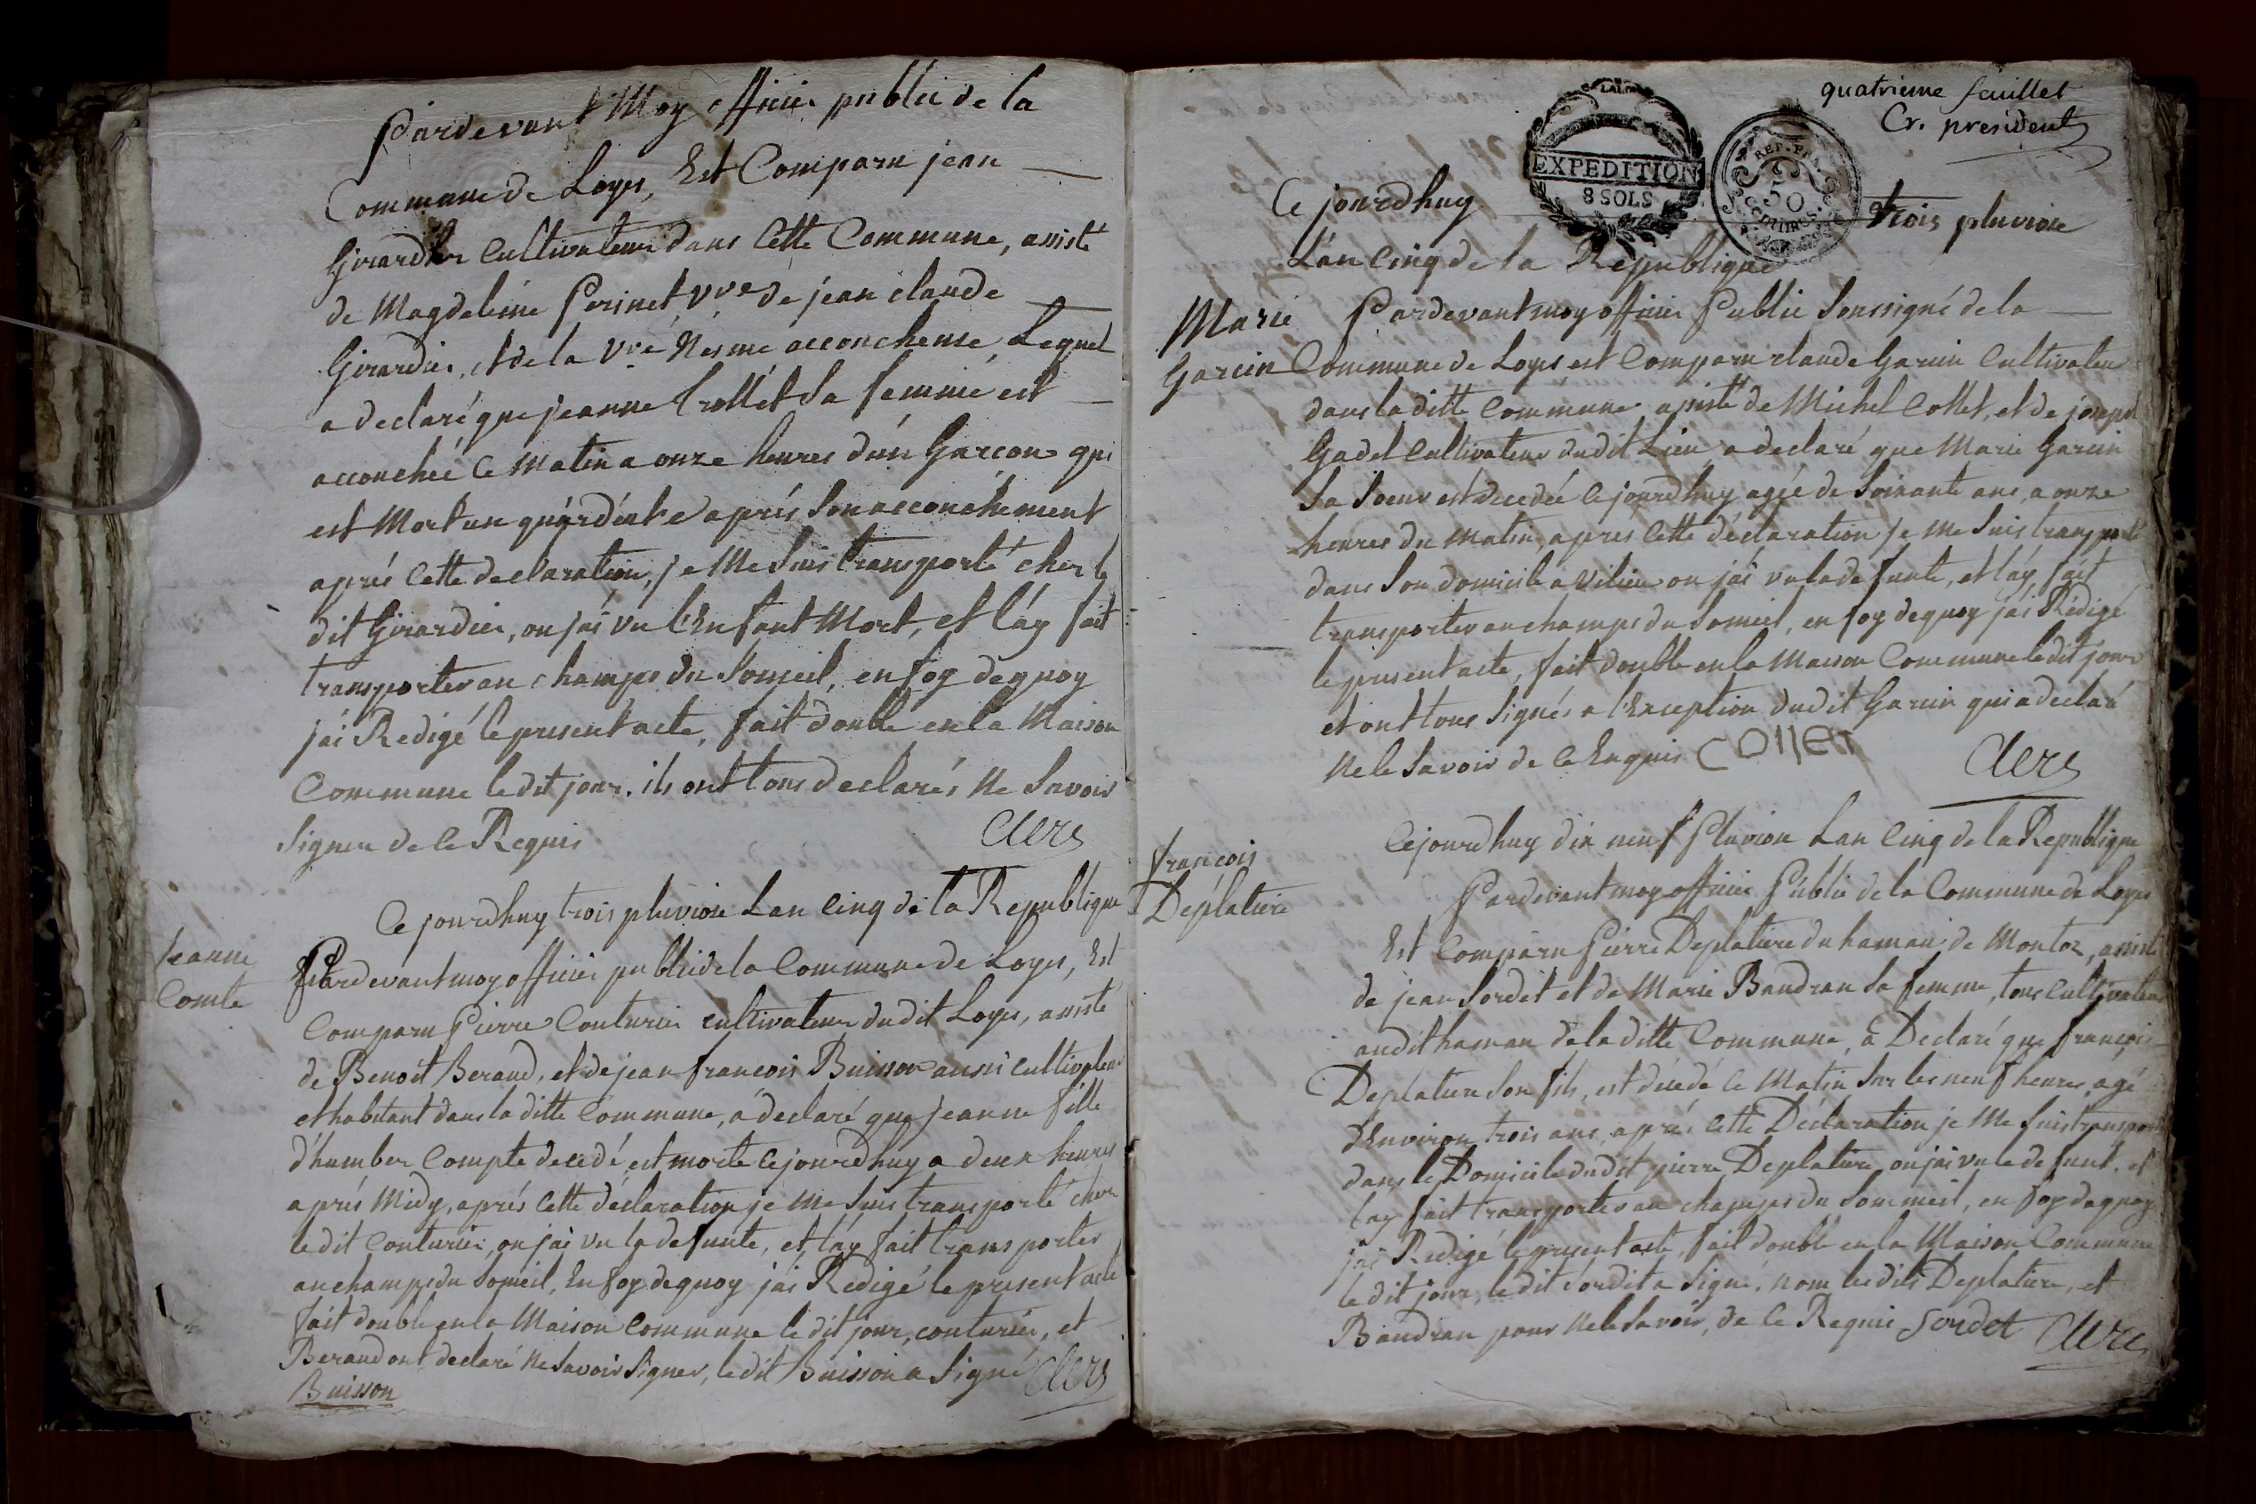 Pardevant Moy officier public de la
Commune de Loyes, Est Comparu jean
Girardier Cultivateur dans Cette Commune, assisté
de Magdeleine Perinet, Vve de jean claude
Girardier, et de la Vve Nesme accoucheuse, Lequel
a declaré que jeanne Collet Sa femme est
accouchée Ce Matin a onze heures d'un Garçon qui
est Mort un quárdéure aprés Son accouchement
aprés Cette declaration, je Me Suis transporté chez le
dit Girardier, ou jái vu l'Enfant Mort, et l'áy fait
transporter au champs du Someil, en foy de quoy
jái Redigé le present acte, fait double en la Maison
Commune le dit jour. ils ont tous declarés Ne Savoir
Signer de Ce Requis
Clerc
Jeanne
Comte
Ce jourdhuy trois pluviose Lan Cinq de la Republique
Pardevant moy officier public de la Commune de Loyes, Est
Comparu Pierre Couturier cultivateur dudit Loyes, assisté
de Benoit Beraud, et de jean francois Buisson aussi cultivateur
et habitant dans la ditte Commune, á declaré que jeanne fille
d'humber Compte decedé, est morte Cejourdhuy a deux heures
aprés Midy, aprés Cette déclaration je Me Suis transporté chez
le dit Couturier, ou jai vu la defunte, et l'áy fait transporter
au champs du Someil, En foy de quoy jái Rédigé le present acte
fait double en la Maison Commune le dit jour, couturier, et
Beraud ont declaré Ne Savoir Signer, le dit Buisson a Signé
Clerc
Buisson
quatrieme feuillet
Cr. president
EXPEDITION
8 SOLS
REP. FRA.
50
CENTIMES
Ce jourdhuy trois pluviose
Lán Cinq de la Republique
Marie
Garcin
Pardevant moy officier Public Soussigné de la
Commune de Loyes est Comparu claude Garcin Cultivateur
dans la ditte Commune assisté de Michel Collet, et de joseph
Gadel Cultivateur du dit Lieu a declaré que Marie Garcin
Sa Soeur est decedée Cejourdhuy agée de Soixante ans, a onze
heures du Matin, aprés Cette déclaration je Me Suis transporté
dans Son domicile a Vilieu ou jái vu la defunte, et l'áy fait
transporter au champs du Someil, en foy de quoy jái Rédigé
le present acte, fait double en la Maison Commune le dit jour
et ont tous Signés a l'Exception du dit Garcin qui a declaré
Ne le Savoir de Ce Enquis COllet
Clerc
françois
Déplature
Cejourdhuy dix neuf Pluviose Lan Cinq de la Republique
Pardevant moy officier Public de la Commune de Loyes
Est Comparu Pierre Deplature du hamau de Montoz, assisté
de jean Sordet et de Marie Baudran Sa femme, tous Cultivateurs
audit hamau de la ditte Commune, á Declaré que françois
Deplature Son fils, est décédé Ce Matin Sur les neuf heures, agé
d'Environ trois ans, aprés Cette Déclaration je Me Suis transporté
dans le Domicile dudit pierre Deplature, ou jái vu le defunt, et
l'ay fait transporter au champs du Sommeil, en foy de quoy
jái Redigé le present acte, fait double en la Maison Commune
le dit jour, le dit Sordet a Signé, Nom les dits Deplature, et
Baudran pour Ne le Savoir, de Ce Requis Sordet Clerc